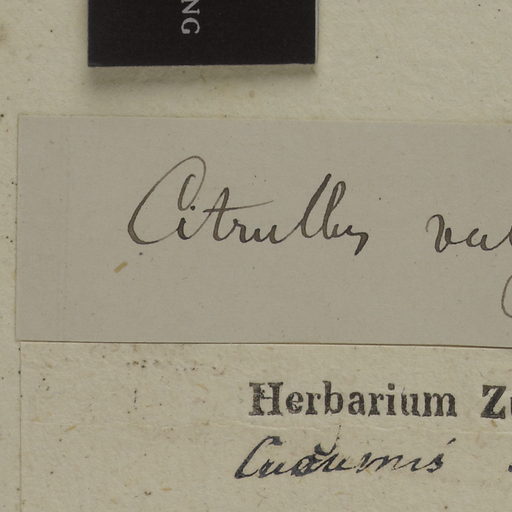 NG
Citrullus
Herbarium
Cucumis